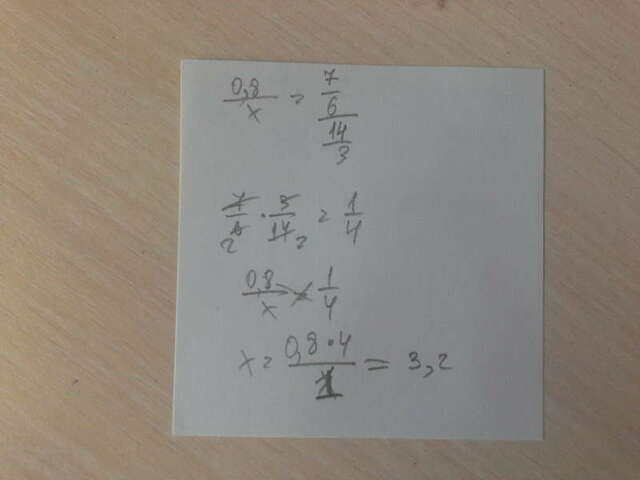 0,8/x = 7/6 / 14/3
7/6 · 3/14 = 1/4
2 2
0,8/x = 1/4
x = 0,8·4/1 = 3,2